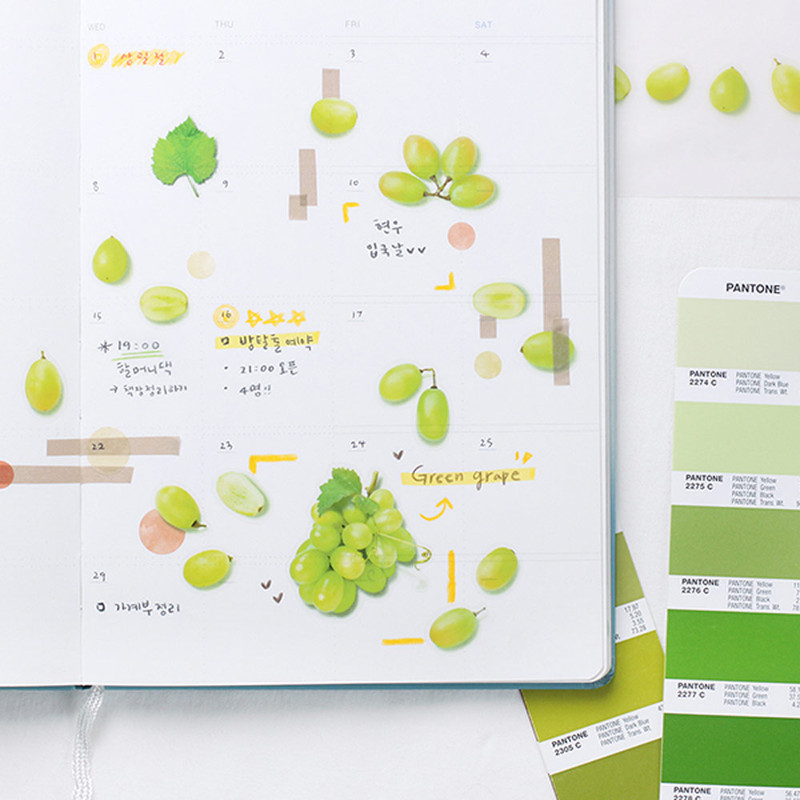 WED THU FRI SAT
1 삼일절 2 3 4
8 9 10
현우
입국날♥♥
15 16 17
* 19:00
할머니댁
→ 책장정리하기
방탈출 예약
· 21:00 오픈
· 4명!!
22 23 24 25
Green grape
29
가계부 정리
PANTONE®
PANTONE
2274 C
PANTONE Yellow
PANTONE Dark Blue
PANTONE Trans. Wt.
PANTONE
2275 C
PANTONE Yellow
PANTONE Green
PANTONE Black
PANTONE Trans. Wt.
PANTONE
2276 C
PANTONE Yellow
PANTONE Green
PANTONE Black
PANTONE Trans. Wt.
PANTONE
2277 C
PANTONE Yellow
PANTONE Green
PANTONE Black
PANTONE
2278 C
PANTONE Yellow
17.97
5.20
3.55
73.28
PANTONE
2305 C
PANTONE Yellow
PANTONE Dark Blue
PANTONE Black
PANTONE Trans. Wt.